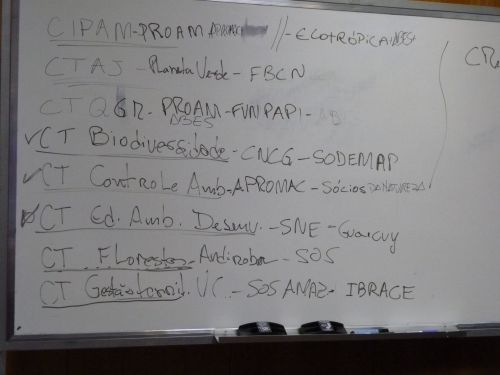 CIPAM-PROAM APROMAC //-ECOTRÓPICA INSES
CTAJ - Planeta Verde - FBCN
CTQGR - PROAM-FUNPAPI-
INSES
CT Biodiversidade - CNCG - SODEMAP
CT Controle Amb - APROMAC - Sócios DA NATUREZA
CT Ed. Amb. Desenv. - SNE - Guaicuy
CT Florestas - Andiroba - SOS
CT Gestão territ. UC. - SOS AMAZ - IBRACE